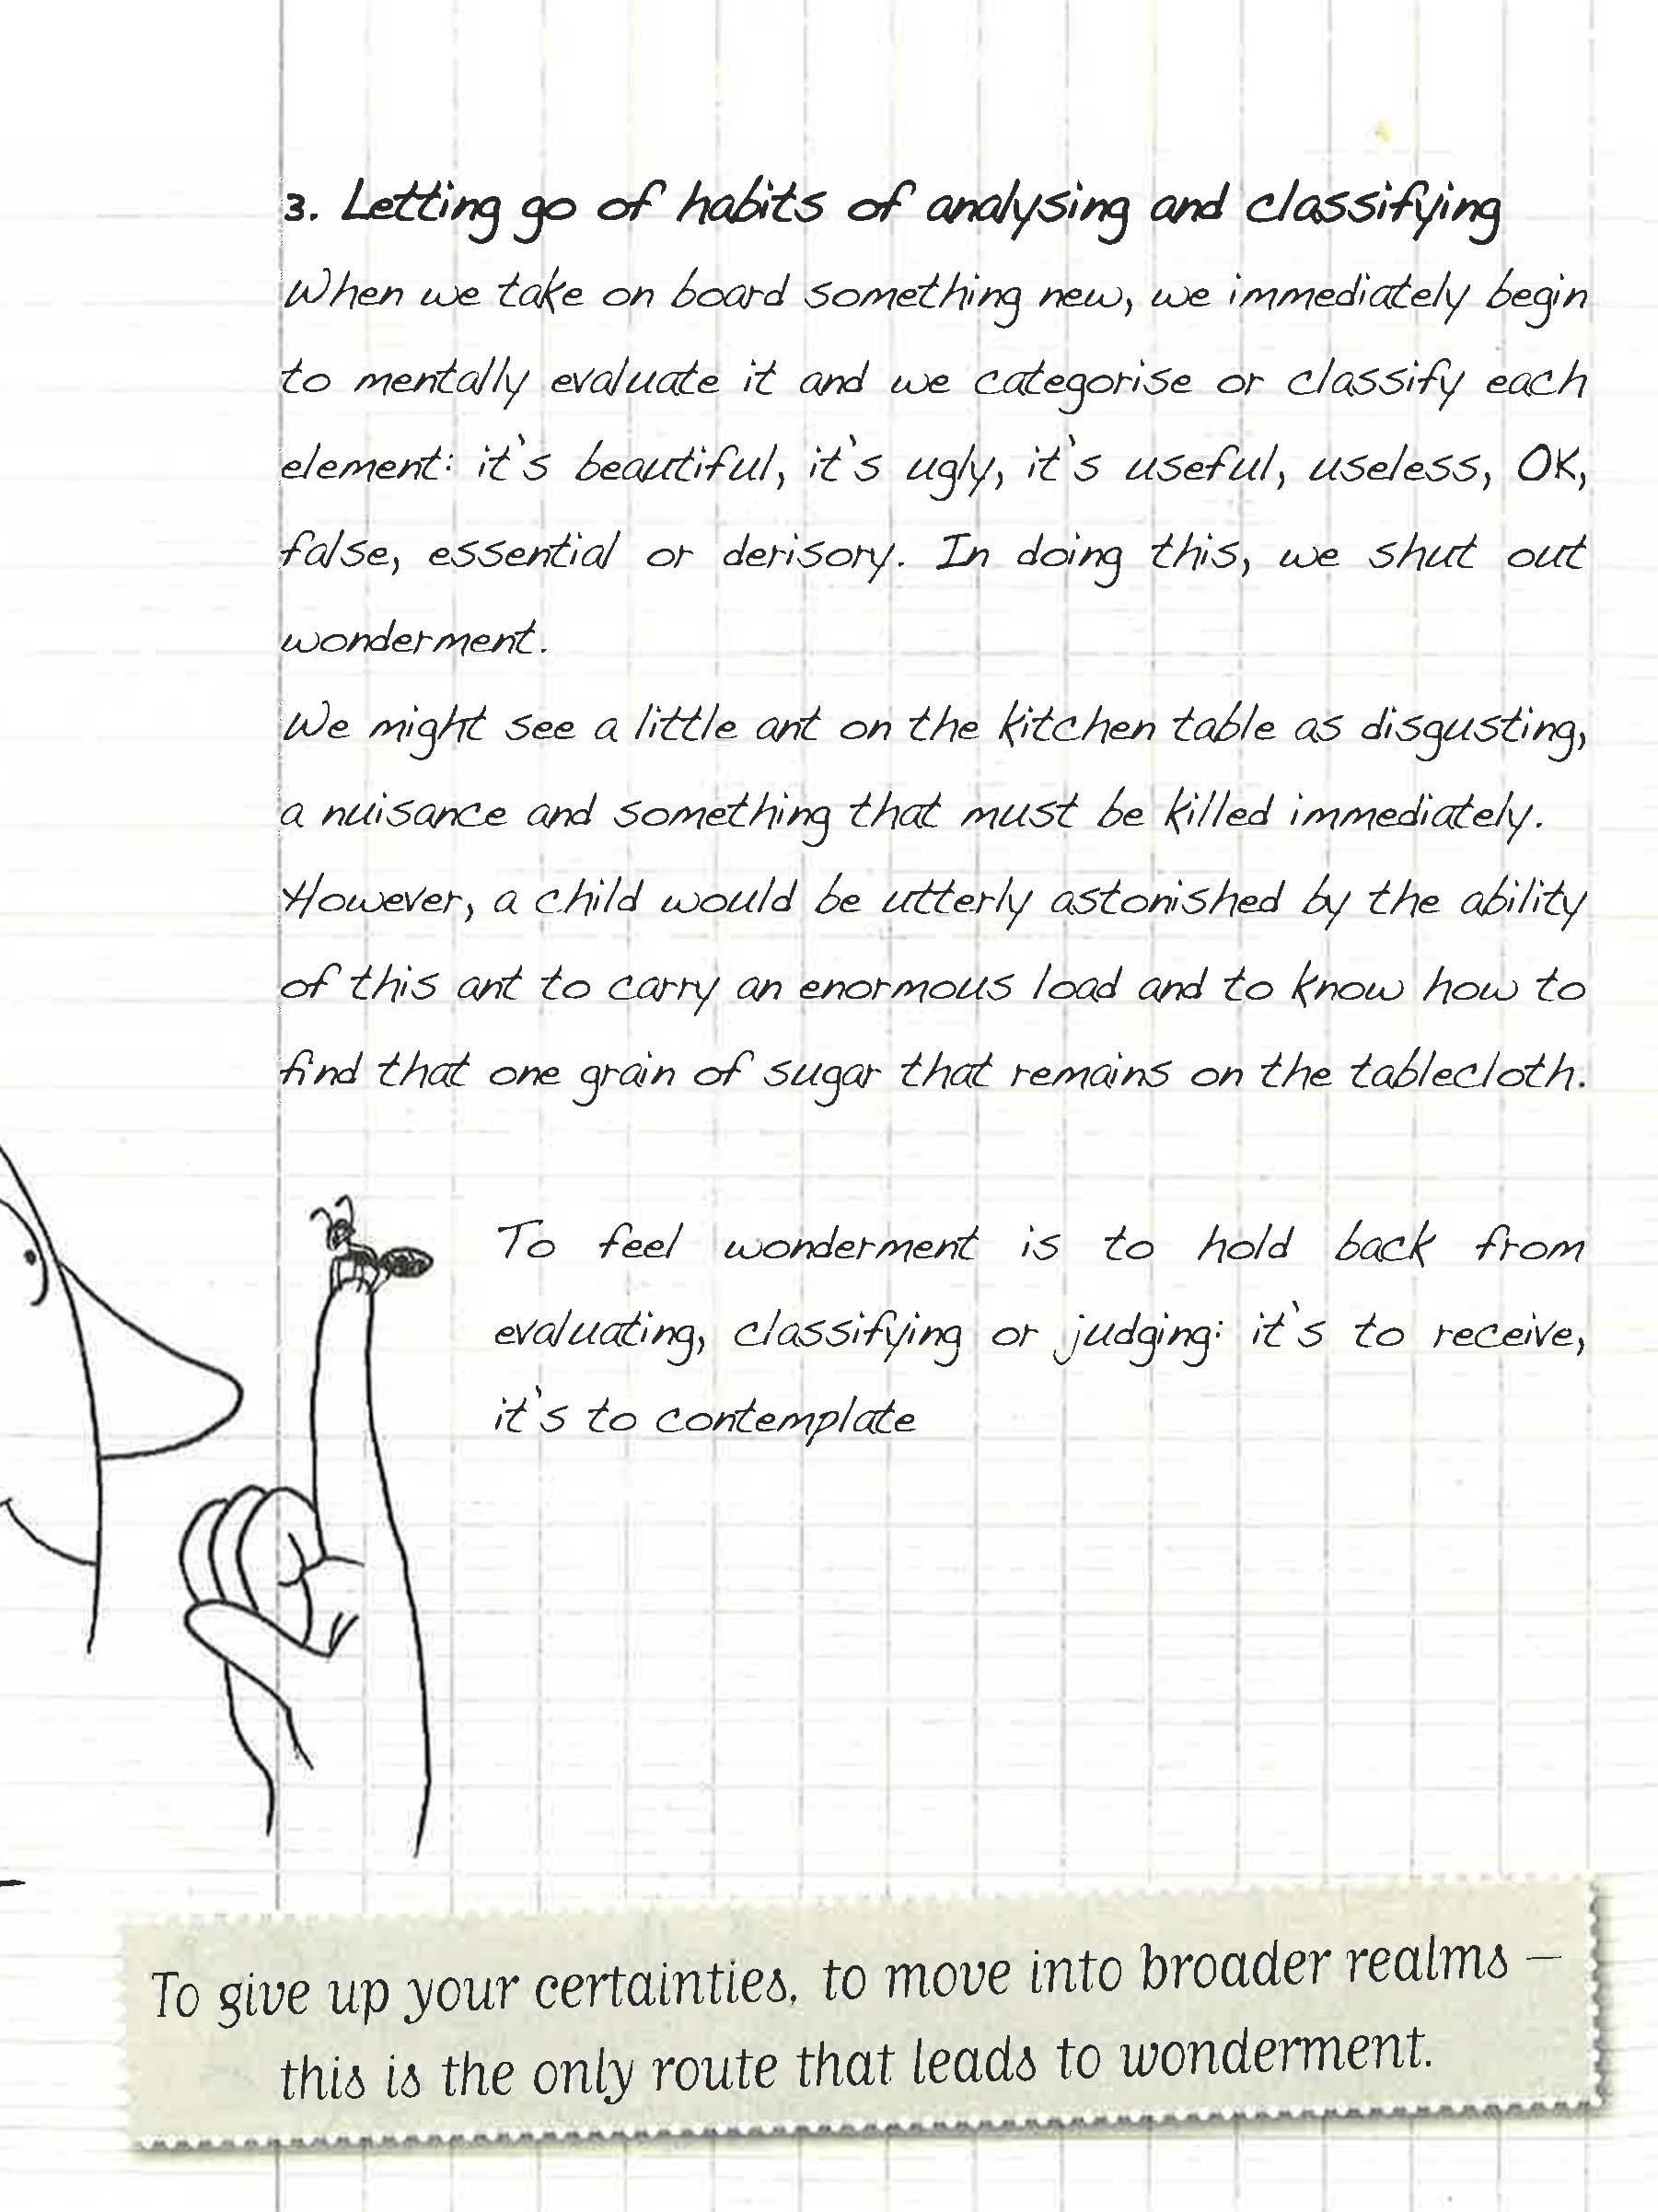 3. Letting go of habits of analysing and classifying
When we take on board something new, we immediately begin
to mentally evaluate it and we categorise or classify each
element: it's beautiful, it's ugly, it's useful, useless, OK,
false, essential or derisory. In doing this, we shut out
wonderment.
We might see a little ant on the kitchen table as disgusting,
a nuisance and something that must be killed immediately.
However, a child would be utterly astonished by the ability
of this ant to carry an enormous load and to know how to
find that one grain of sugar that remains on the tablecloth.
To feel wonderment is to hold back from
evaluating, classifying or judging: it's to receive,
it's to contemplate
To give up your certainties, to move into broader realms –
this is the only route that leads to wonderment.